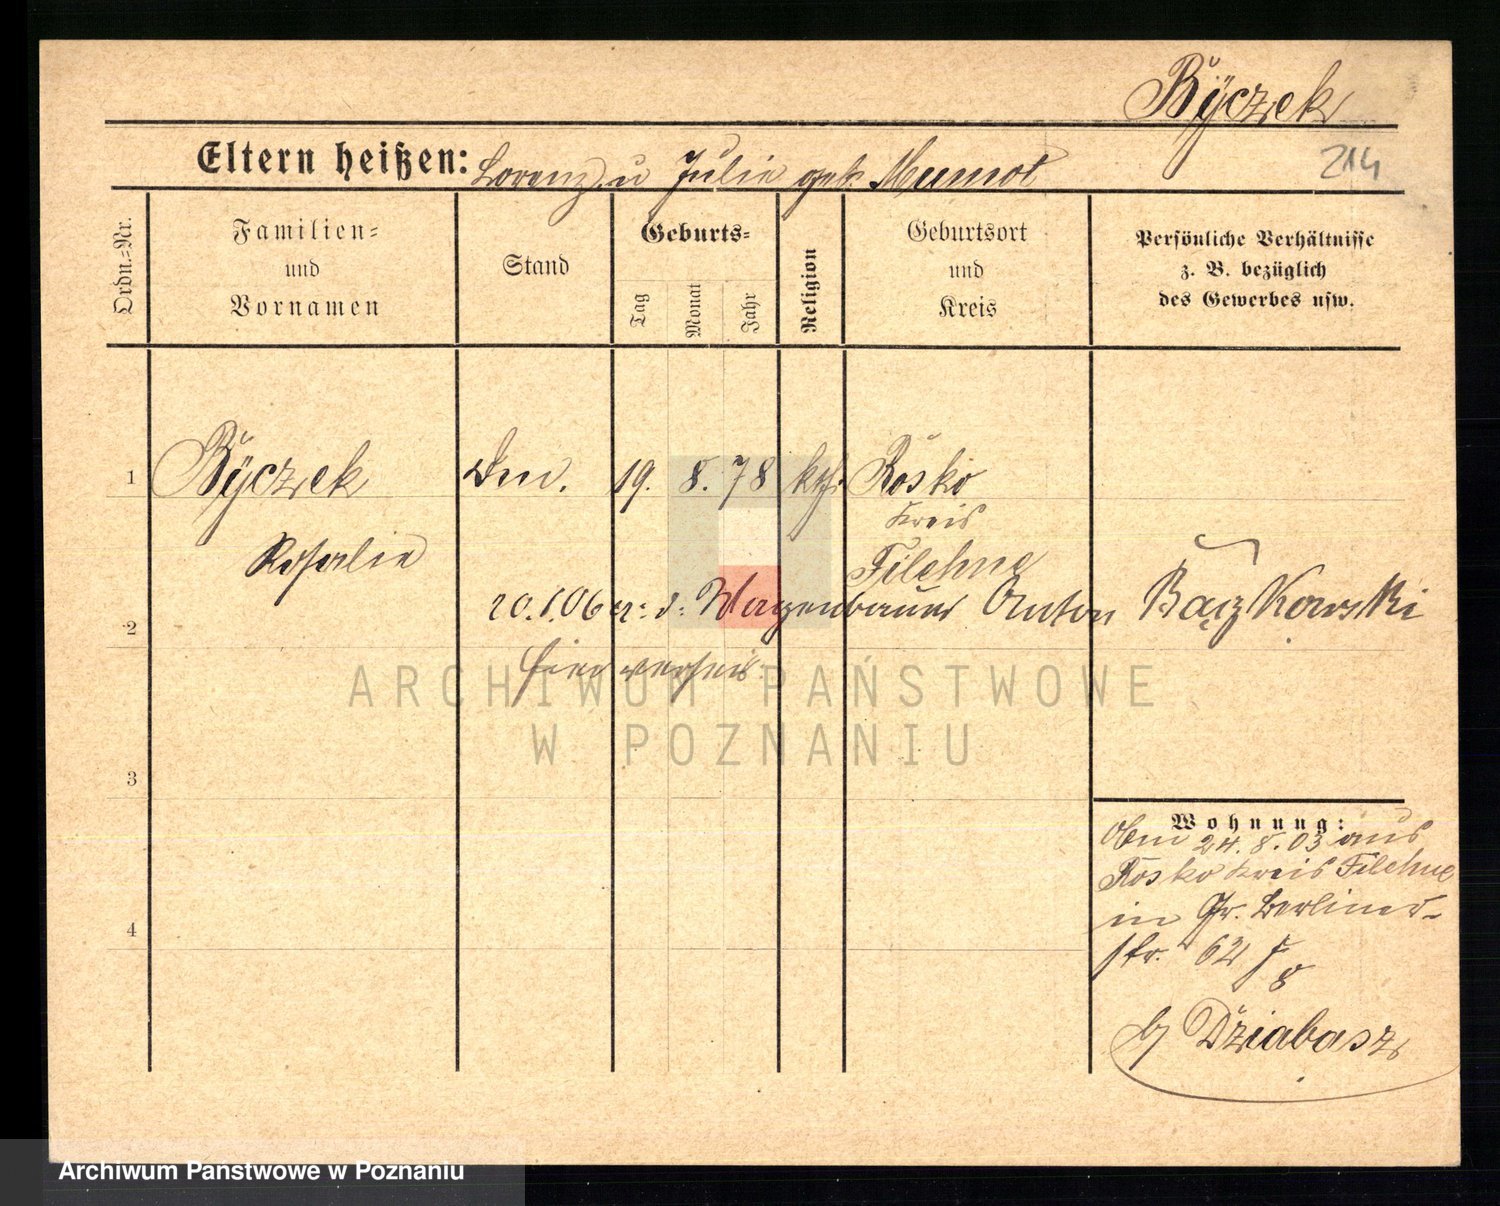 Byczek
Eltern heißen: Lorenz u Julie geb. Mumot
214
Ordn.-Nr.
Familien-
und
Vornamen
Stand
Geburts-
Tag
Monat
Jahr
Religion
Geburtsort
und
Kreis
Persönliche Verhältnisse
z. B. bezüglich
des Gewerbes usw.
1 Byczek 19. 8. 78 kth. Rosko
Kreis
Rosalie
Filehne
20.1.06 Wagenbauer Anton Bączkowski
2
hier verheir.
ARCHIWUM PAŃSTWOWE
W POZNANIU
3
Wohnung:
24.8.03 aus
Rosko Kreis Filehne
in Gr. Berliner-
4
str. 62
b/ Dziabasz
Archiwum Państwowe w Poznaniu